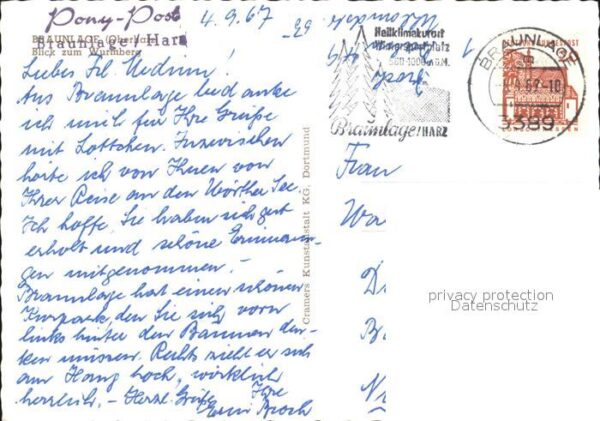 Pony-Post
4.9.67
BRAUNLAGE (Oberharz)
Braunlage/Harz
Blick zum Wurmberg
Liebes Frl.
Aus Braunlage bedanke
ich mich für Ihre Grüße
mit Lottchen. Inzwischen
hörte ich von Ihnen von
Ihrer Reise an den Wörther See.
Ich hoffe, Sie haben sich gut
erholt und schöne Erinnerun-
gen mitgenommen!
Braunlage hat einen schönen
Kurpark, den Sie sich vorn
links hinter den Bäumen den-
ken müssen. Rechts zieht er sich
am Hang hoch, wirklich
herrlich. - Herzl. Grüße Ihre
Cramers Kunstanstalt KG, Dortmund
Heilklimakurort
Wintersportplatz
560-1000 m ü.M.
Braunlage/HARZ
BRAUNLAGE
3389
Frau
Wa
D
B
N
privacy protection
Datenschutz